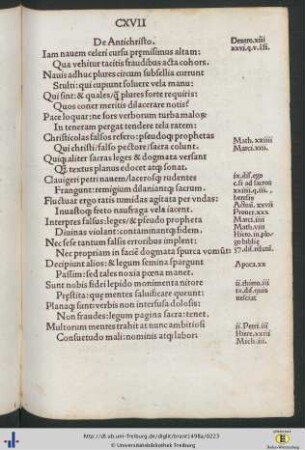 CXVII
De Antichristo.
Iam nauem celeri cursu præmisimus altam:
Qua vehitur tacitis fraudibus acta cohors.
Nauis adhuc plures circum subsellia currunt
Stulti: qui cupiunt soluere vela manu:
Qui sint: & quales/q̃ plures forte requiris:
Quos coner meritis dilacerare notis?
Pace loquar: ne fors verborum turba maloꝝ
In teneram pergat tendere tela ratem:
Christicolas falsos refero: pseudoq; prophetas
Qui christi: falso pectore: sacra colunt.
Quiq; aliter sacras leges & dogmata versant
Q̃ textus planus edocet atq; sonat.
Clauigeri petri nauem/sacrosq; rudentes
Frangunt: remigium dilaniantq; sacrum.
Fluctuat ergo ratis tumidas agitata per vndas:
Inuastoq; freto naufraga vela iacent.
Interpres falsus: leges/& pseudo propheta
Diuinas violant: contaminantq; fidem.
Nec sese tantum falsis erroribus implent:
Nec propriam in faciē dogmata spurca vomūt:
Decipiunt alios: & legum semina spargunt
Passim: sed tales noxia pœna manet.
Sunt nobis fidei lepido monimenta nitore
Præstita: quę mentes saluificare queunt:
Planaq; sunt: verbis non intersusa dolosis:
Non fraudes: legum pagina sacra: tenet.
Multorum mentes trahit at nunc ambitiosi
Consuetudo mali: nominis atq; labor:
Deutro.xiii
xxxi.q.v.
Math.xxiiii
Marci.xiii.
e.si ad sacras
xxiiii.q.iii.
Actuū.xxvii
Prouer.xxx
Marci.iiii
Math.viii
Hiero.in.plo
go biblię
37.dis.relatū.
Apoca.xx
ii.thimo.iii
ix.dis.quis
nesciat
ii.Petri.iii
Hiere.xxiii
Mich.iii.
http://dl.ub.uni-freiburg.de/diglit/brant1498a/0223
© Universitätsbibliothek Freiburg